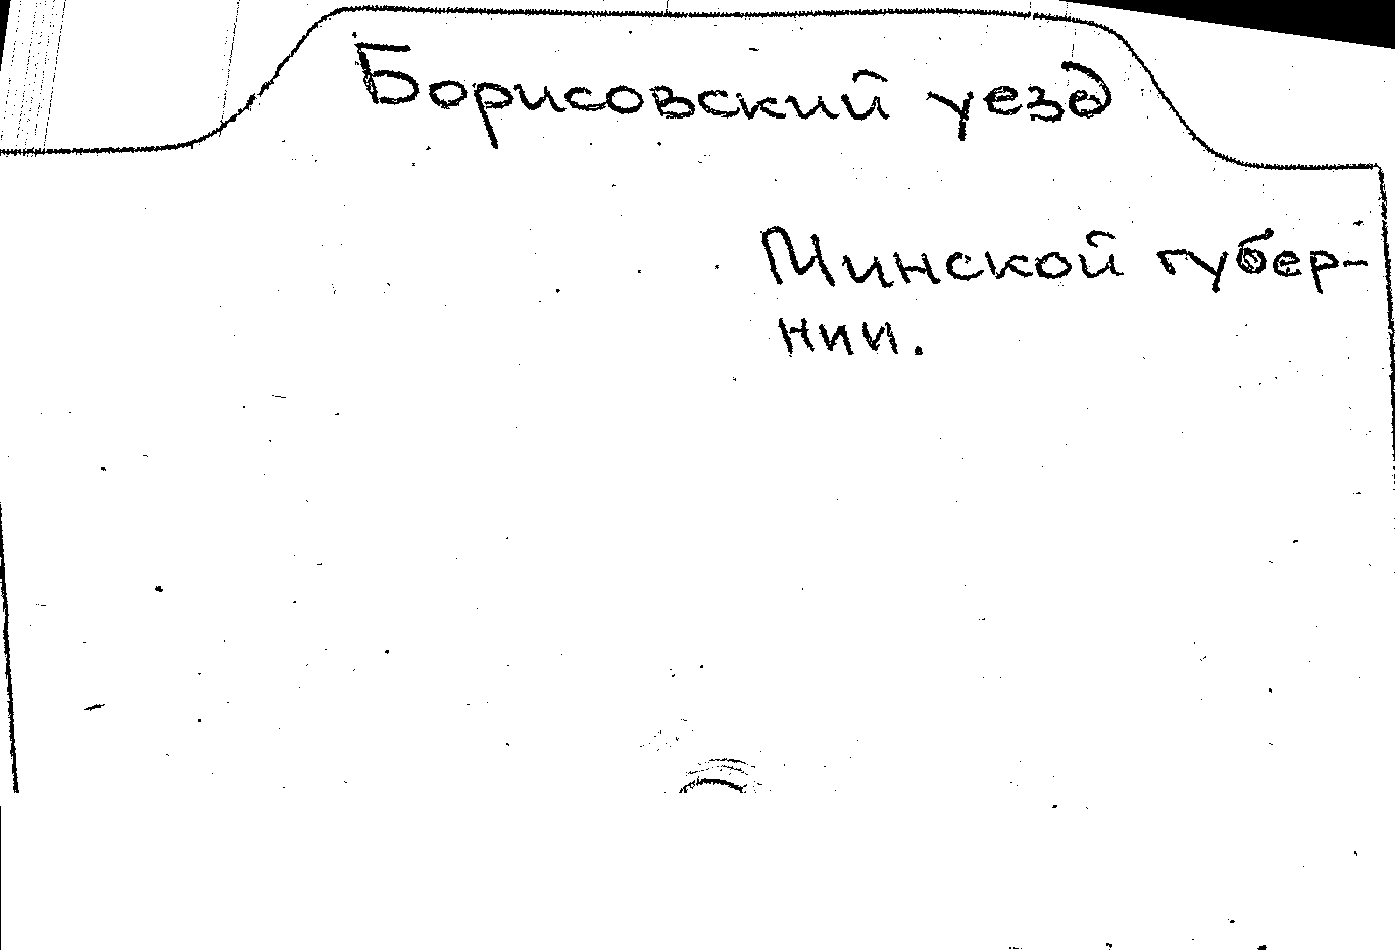 Борисовский уезд
Минской губер-
нии.